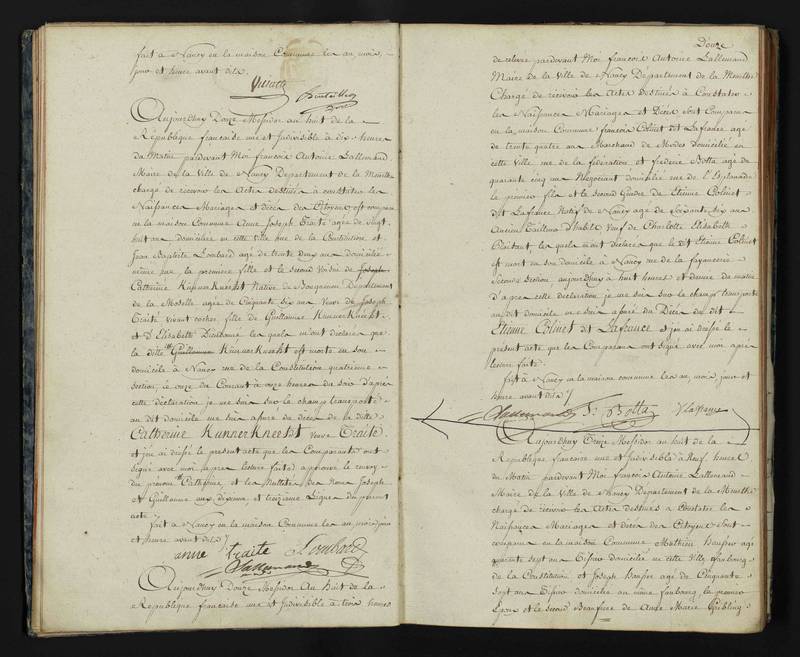 fait à Nancy en la maison Commune les an, mois,
jour et heure avant dits
Aujourdhuy Douze Messidor au huit de la
République francaise une et Indivisible à dix heures
du Matin pardevant Moi françois Antoine Lallemand
Maire de la Ville de Nancy Departement de la Meurthe
chargé de recevoir les Actes destinés à constater les
Naissances Mariages et décès des Citoyens est comparu
en la maison Commune Anne Joseph Traité agée de vingt
huit ans domiciliée en cette Ville rue de la Constitution et
Jean Baptiste Lombard agé de trente deux ans domicilié
même rue la premiere fille et le second voisin de Joseph
Catherine Kunnerknecht Native de Département
de la Moselle agée de Cinquante six ans Veuve de Joseph
Traité vivant cocher fille de Guillaume Kunnerknecht
et d'Elisabeth les quels m'ont déclaré que
la ditte Guillaume Kunnerknecht est morte en son
domicile à Nancy rue de la Constitution quatrieme
section, le onze du Courant à onze heures du soir d'apres
cette déclaration je me suis sur le champ transporté
au dit domicile me suis assuré du décès de la ditte
Catherine Kunnerknecht veuve Traité
et j'ai dressé le present acte que les Comparants ont
signé avec moi apres lecture faite approuvé le renvoy
du prénom Catherine, et les Nullités des Noms Joseph
et Guillaume aux dixieme, et treizieme Lignes du present
acte
fait à Nancy en la maison Commune les an mois jour
et heure avant dits
anne traite Lombard
Lallemand
Aujourdhuy Douze Messidor Au huit de la
République francaise une et Indivisible à trois heures
Douze
de relevée pardevant Moi françois Antoine Lallemand
Maire de la Ville de Nancy Département de la Meurthe
Chargé de recevoir les Actes Destinés à Constater
les Naissances Mariages et Décès Sont Comparus
en la maison Commune françois Colinet dit Lafrance agé
de trente quatre ans Marchand de Modes Domicilié en
cette Ville rue de la federation et frederic Botta agé de
quarante cinq ans Negociant domicilié rue de l'Esplanade
le premier fils et le second Gendre de Etienne Colinet
dit Lafrance Natif de Nancy agé de soixante six ans
Ancien Tailleur d'habits Veuf de Charlotte Elisabeth
les quels m'ont déclaré que le dit Etienne Colinet
est mort en son domicile à Nancy rue de la fayancerie
seconde section aujourdhuy à huit heures et demie du matin
d'apres cette déclaration je me suis sur le champ transporté
au dit domicile me suis assuré du Décès du dit
Etienne Colinet dit Lafrance et j'ai dressé le
present acte que les Comparans ont signé avec moi après
lecture faite
fait à Nancy en la maison commune les an, mois, jour et
heure avant dits
Lallemand f: Botta Lafrance
Aujourdhuy Treize Messidor au huit de la
République francaise une et Indivisible à Neuf heures
du Matin pardevant Moi françois Antoine Lallemand
Maire de la Ville de Nancy Département de la Meurthe
chargé de recevoir les Actes destinés à constater les
Naissances Mariages et décès des Citoyens sont
comparus en la maison Commune Mathieu agé
quarante sept ans domicilié en cette Ville faubourg
de la Constitution et Joseph agé de Cinquante
sept ans domicilié au même faubourg le premier
Epoux et le second Beaufrere de Anne Marie